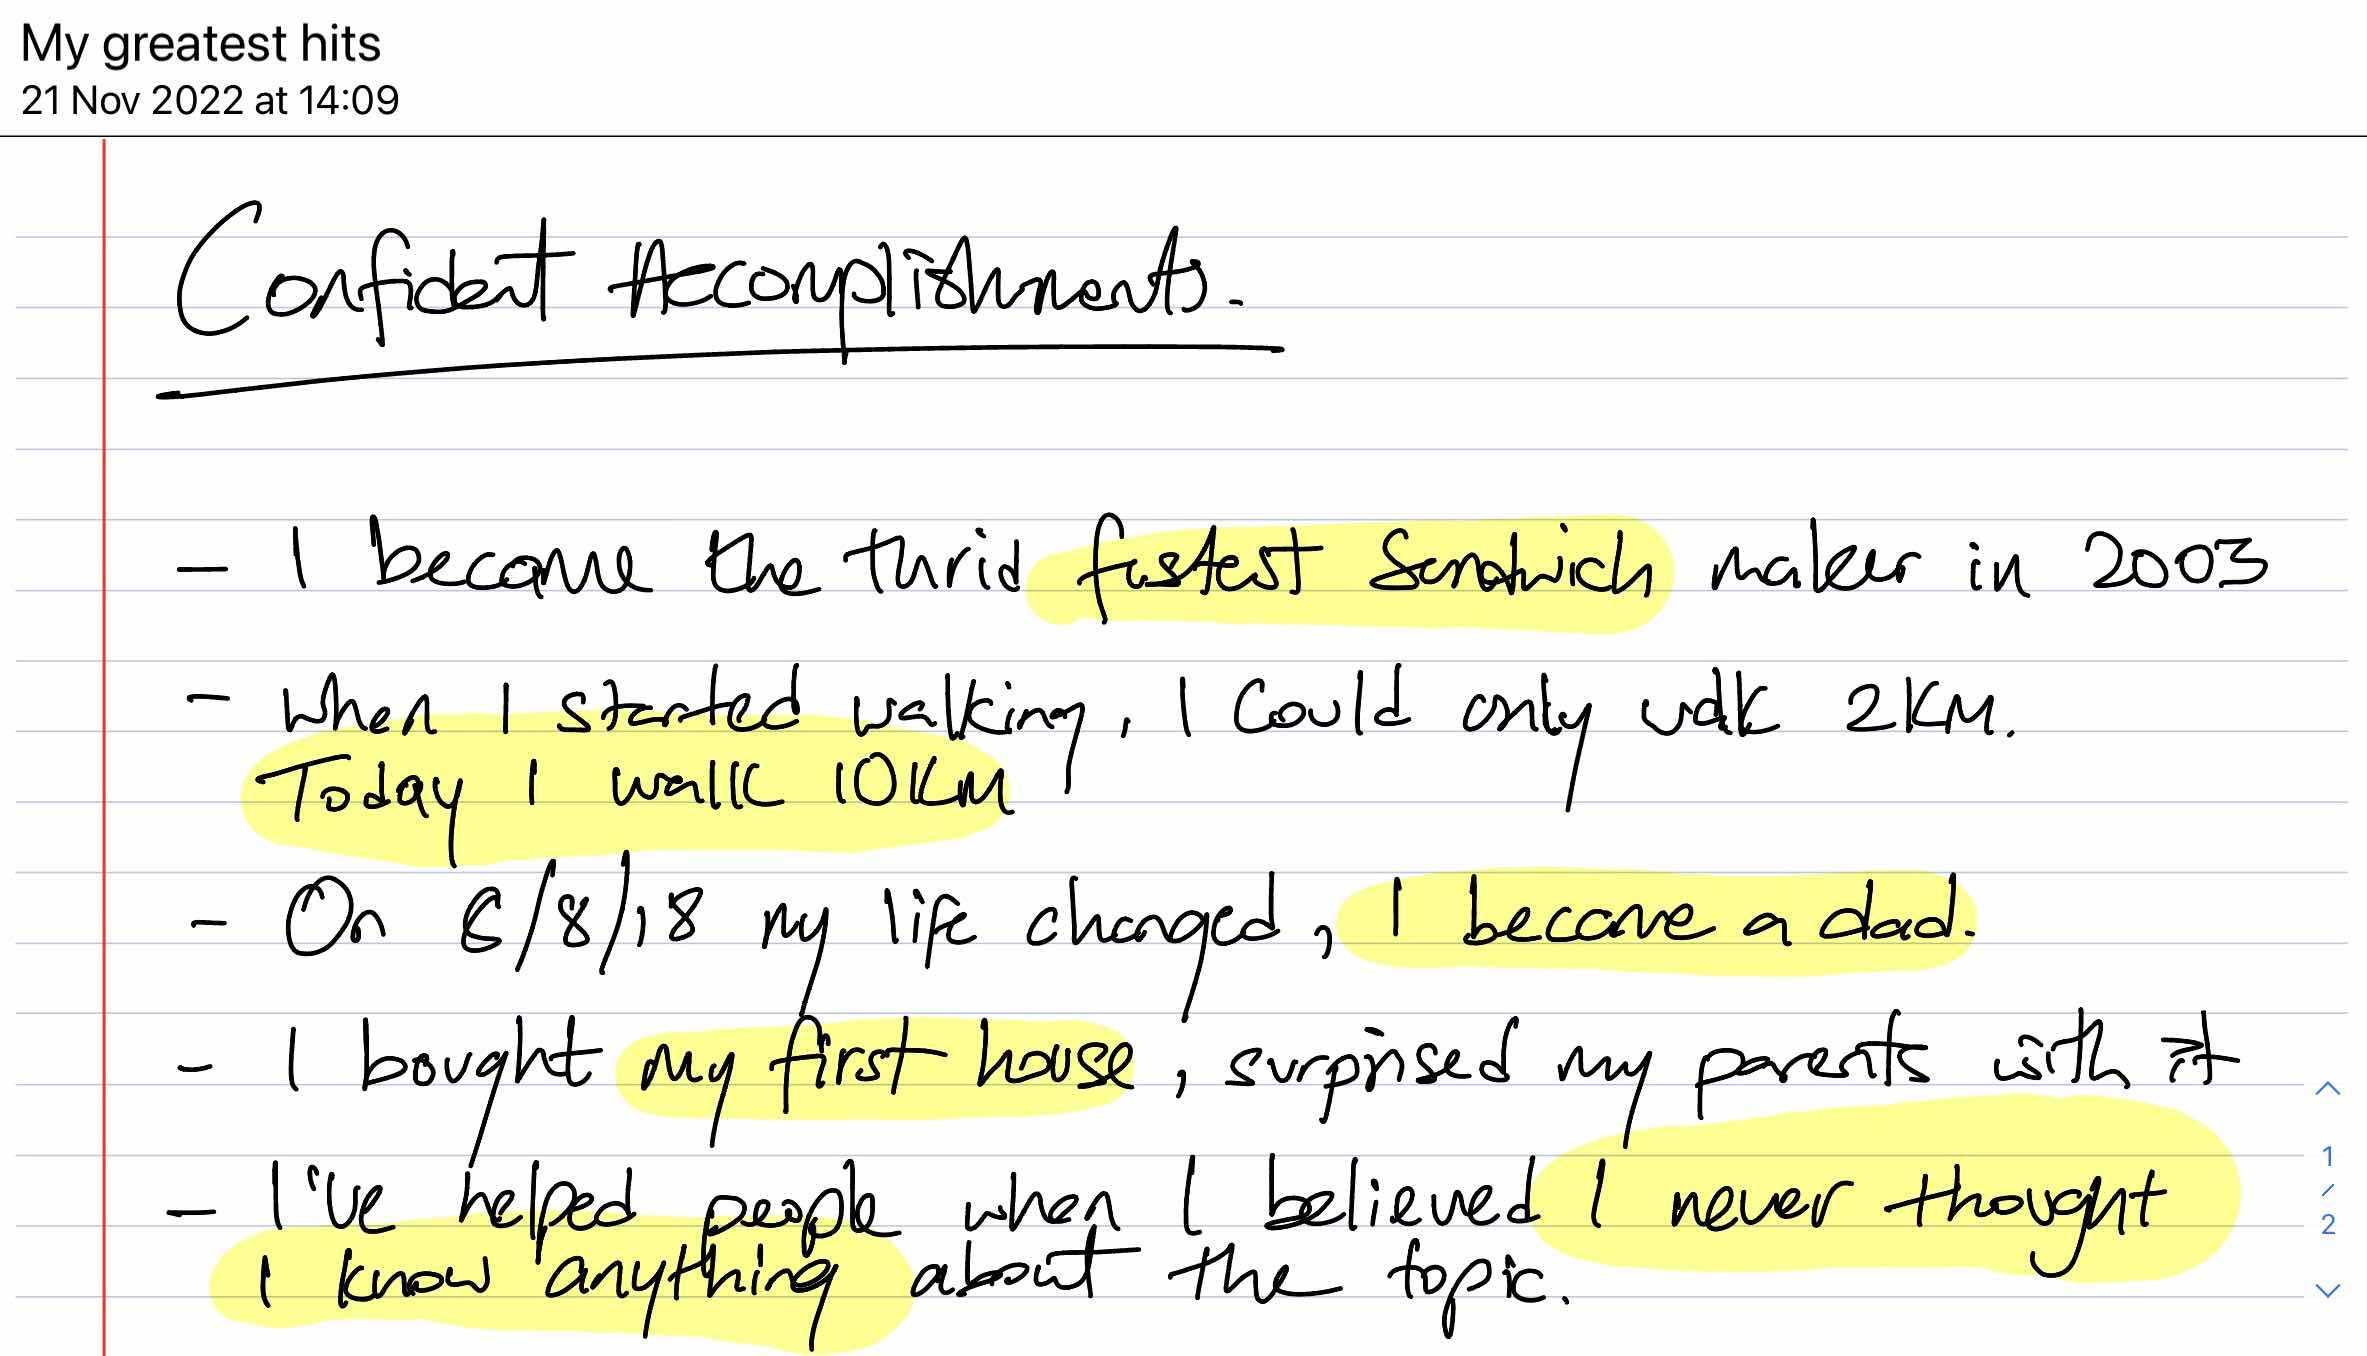 My greatest hits
21 Nov 2022 at 14:09
Confident Accomplishments.
- I became the thrid fastest Sandwich maker in 2003
- When I started walking, I could only walk 2KM.
Today I walk 10KM
- On 8/8/18 my life changed, I became a dad.
- I bought my first house, surprised my parents with it
- I've helped people when I believed I never thought
I know anything about the topic.
1
/
2